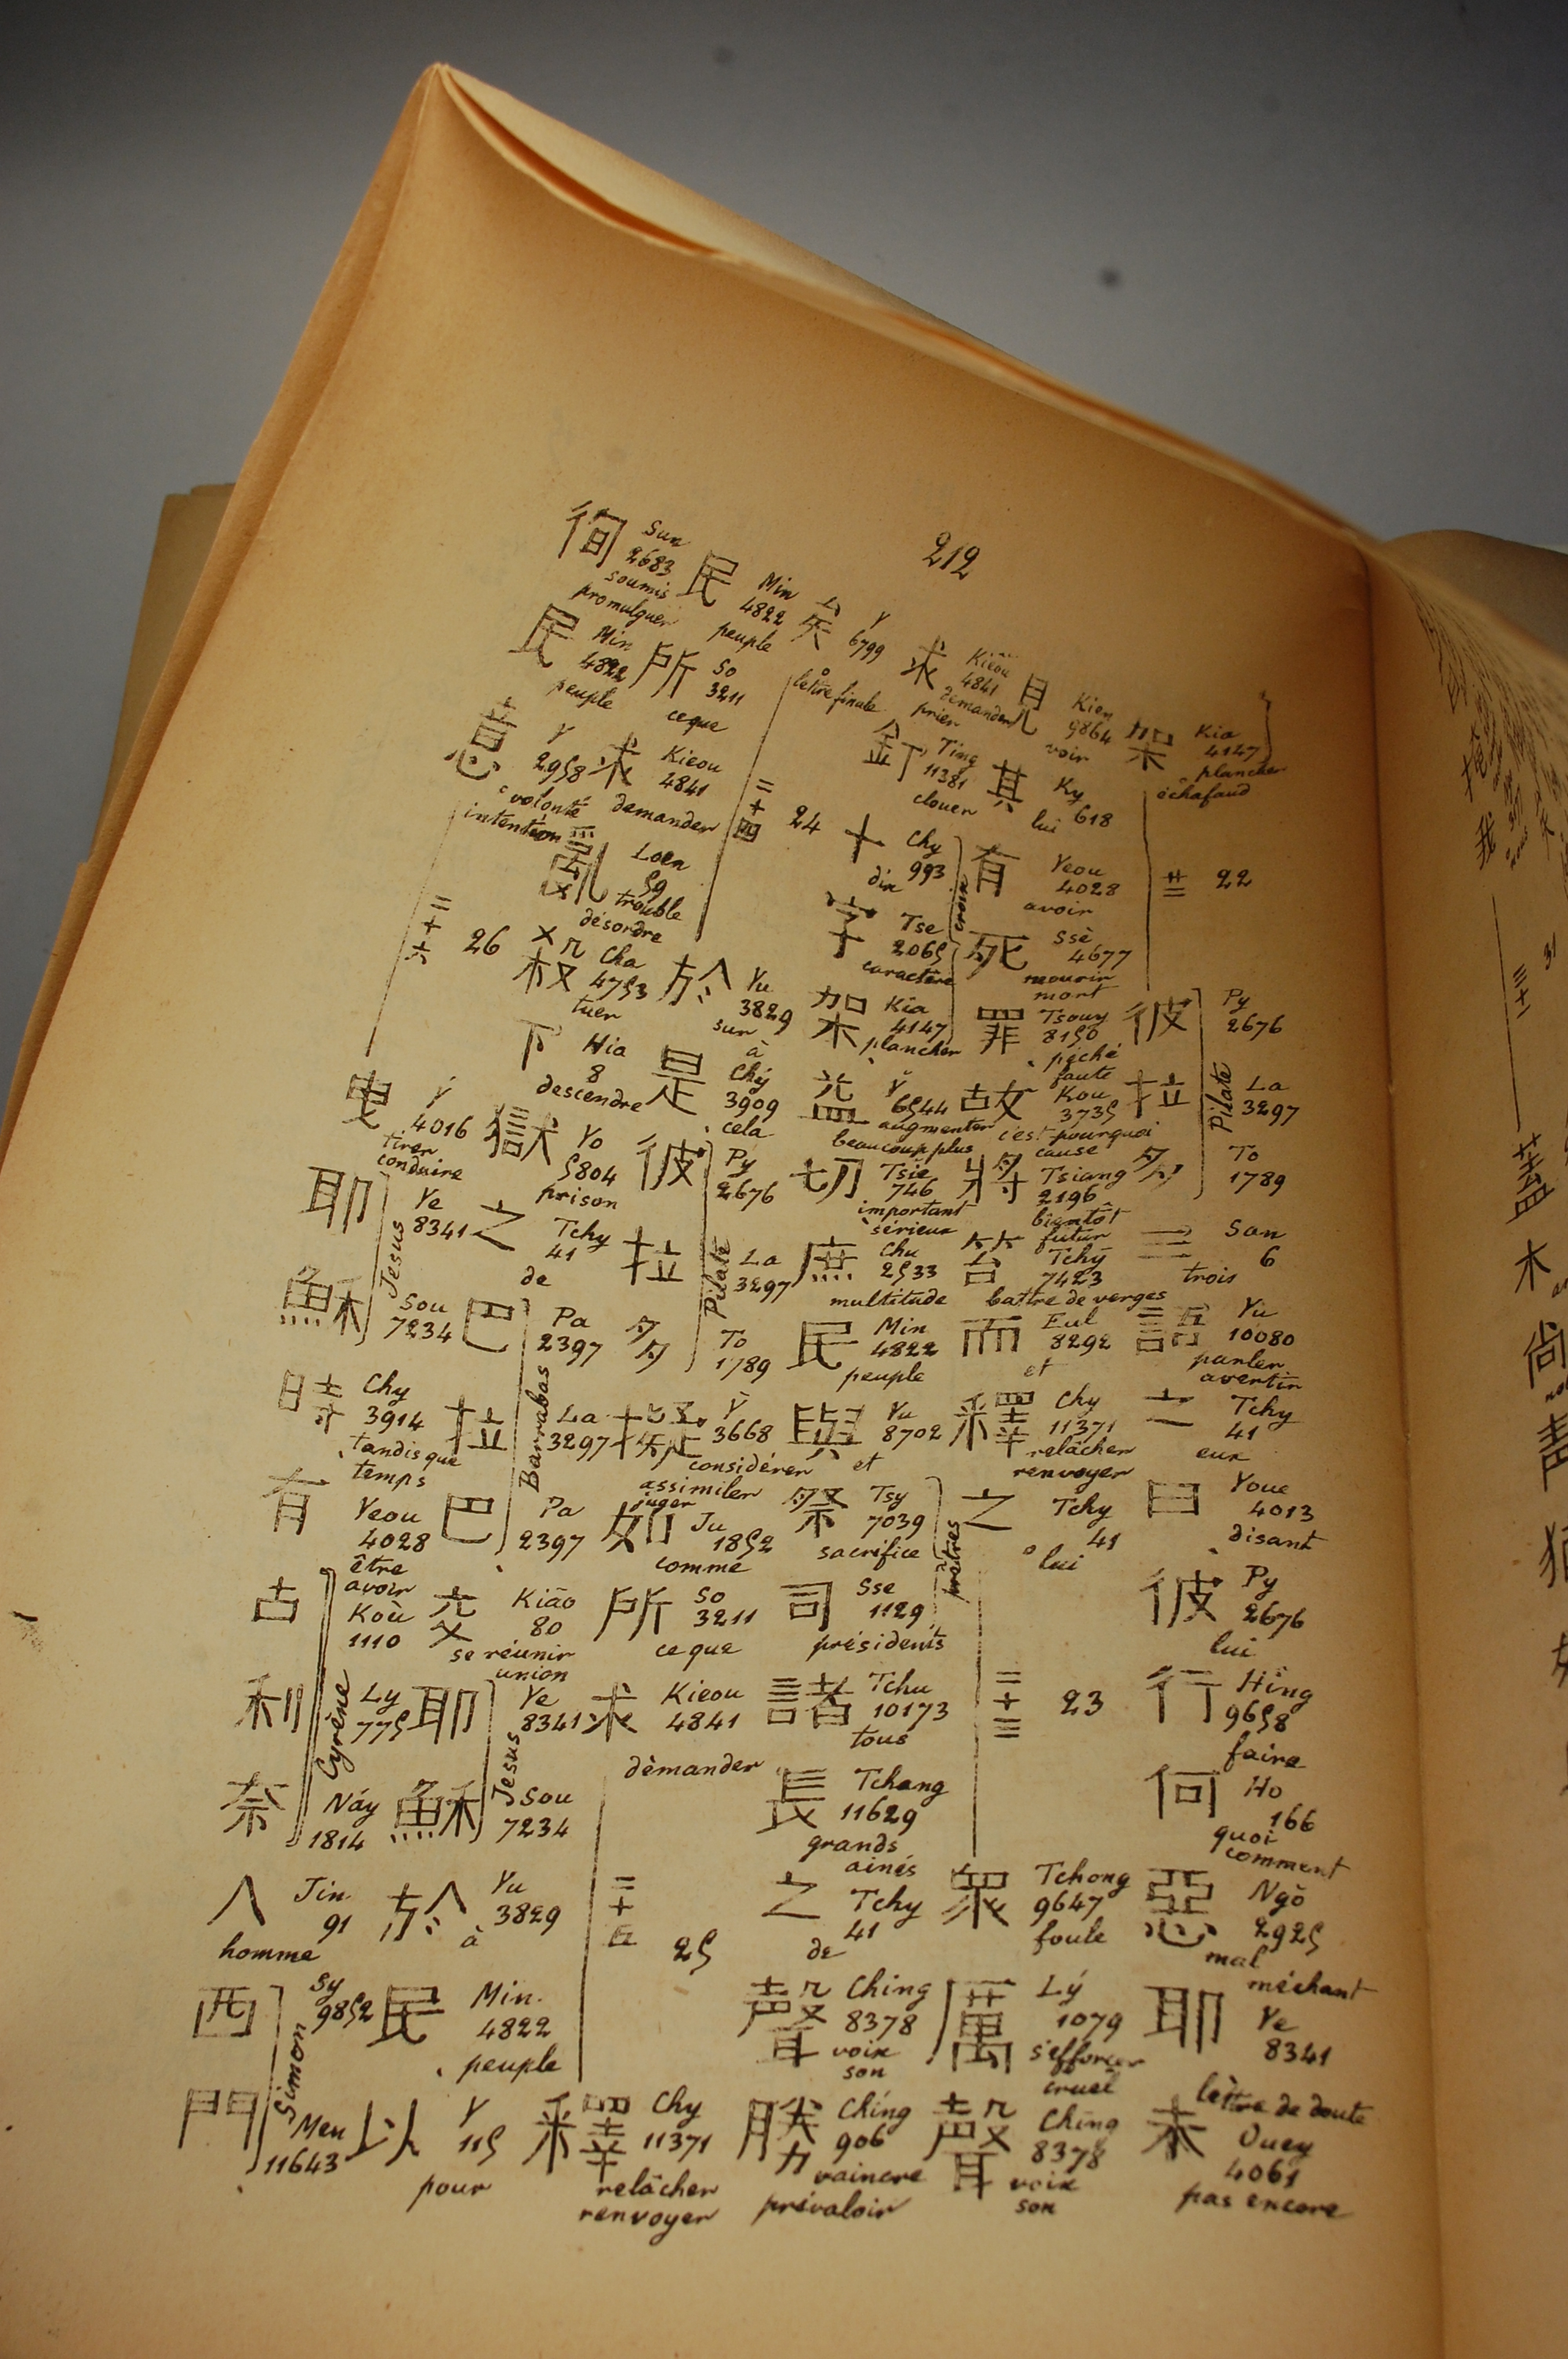 212
架 Kia 4147 plancher échafaud
廿二 22
彼 Py 2676
拉 La 3297 Pilate
多 To 1789
三 San 6 trois
語 Yù 10080 parler avertir
之 Tchy 41 eux
曰 Youe 4013 disant
彼 Py 2676 lui
行 Hîng 9658 faire
何 Ho 166 quoi comment
惡 Ngŏ 2925 mal méchant
耶 Ye 8341 lettre de doute
未 Ouey 4061 pas encore
見 Kien 9864 voir
其 Ky 618 lui
有 Yeou 4028 avoir
死 Ssè 4677 mourir mort
罪 Tsouy 8150 péché faute
故 Kou 3735 c'est pourquoi cause
将 Tsiang 2196 bientôt futur
笞 Tchy 7423 battre de verges
而 Eul 8292 et
釋 Chy 11371 relâcher renvoyer
之 Tchy 41 lui
二十三 23
衆 Tchong 9647 foule
厲 Lý 1079 s'efforcer cruel
聲 Ching 8378 voix son
求 Kieôu 4841 demander prier
釘 Ting 11381 clouer
十 Chy 993 dix
字 Tse 2065 caractère croix
架 Kia 4147 plancher
益 Ỹ 6544 augmenter beaucoup plus
切 Tsiĕ 746 important sérieux
庶 Chu 2533 multitude
民 Min 4822 peuple
與 Yu 8702 et
祭 Tsy 7039 sacrifice
司 Sse 1129 présidents prêtres
諸 Tchu 10173 tous
長 Tchang 11629 grands ainés
之 Tchy 41 de
聲 Ching 8378 voix son
勝 Ching 906 vaincre prévaloir
矣 Y 6799 lettre finale
二十四 24
於 Yu 3829 sur à
是 Chý 3909 cela
彼 Py 2676
拉 La 3297 Pilate
多 To 1789
擬 Ỹ 3668 considérer assimiler juger
如 Ju 1852 comme
所 So 3211 ce que
求 Kieou 4841 demander
二十五 25
釋 Chy 11371 relâcher renvoyer
民 Min 4822 peuple
所 So 3211 ce que
求 Kieou 4841 demander
亂 Loen 59 trouble désordre
殺 Cha 4753 tuer
下 Hia 8 descendre
獄 Yo 5804 prison
之 Tchy 41 de
巴 Pa 2397
拉 La 3297 Barrabas
巴 Pa 2397
交 Kiāo 80 se réunir union
耶 Ye 8341
穌 Sou 7234 Jesus
於 Yu 3829 à
民 Min 4822 peuple
以 Y 115 pour
徇 Sun 2683 soumis promulguer
民 Min 4822 peuple
意 Y 2958 volonté intention
二十六 26
曳 Y 4016 tirer conduire
耶 Ye 8341
穌 Sou 7234 Jesus
時 Chy 3914 tandis que temps
有 Yeou 4028 être avoir
古 Koù 1110
利 Ly 775 Cyrène
奈 Náy 1814
人 Jin 91 homme
西 Sy 9852
門 Men 11643 Simon